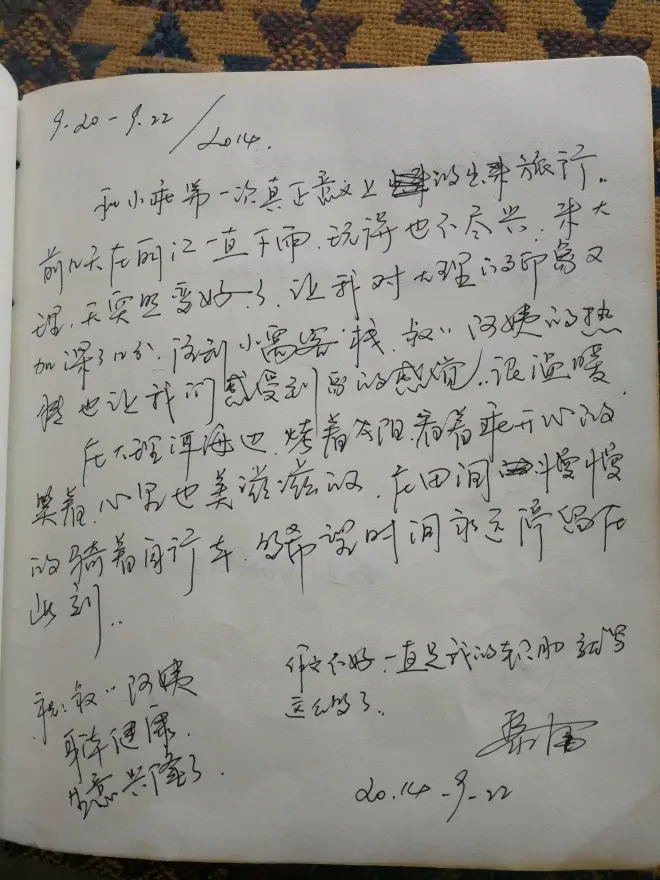 9.20-9.22/2014.
和小乖第一次真正意义上的出来旅行..
前几天在丽江一直下雨.玩得也不尽兴.来大
理.天突然变好了.让我对大理的印象又
加深了几分.闲到小窝客栈.叔〃阿姨的热
情也让我们感受到家的感觉..很温暖.
在大理洱海边.烤着太阳.看着乖开心的
笑着.心里也美滋滋的.在田间慢慢
的骑着自行车.希望时间永远停留在
此刻..
作文不好.一直是我的软肋.就写
这么多了.
祝:叔〃阿姨
身体健康.
生意兴隆.
2014-9-22